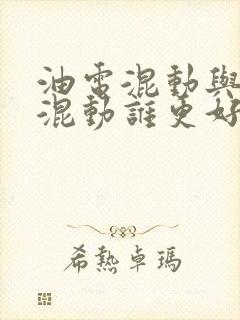 油電混動與
混動誰更好
希熱卓瑪